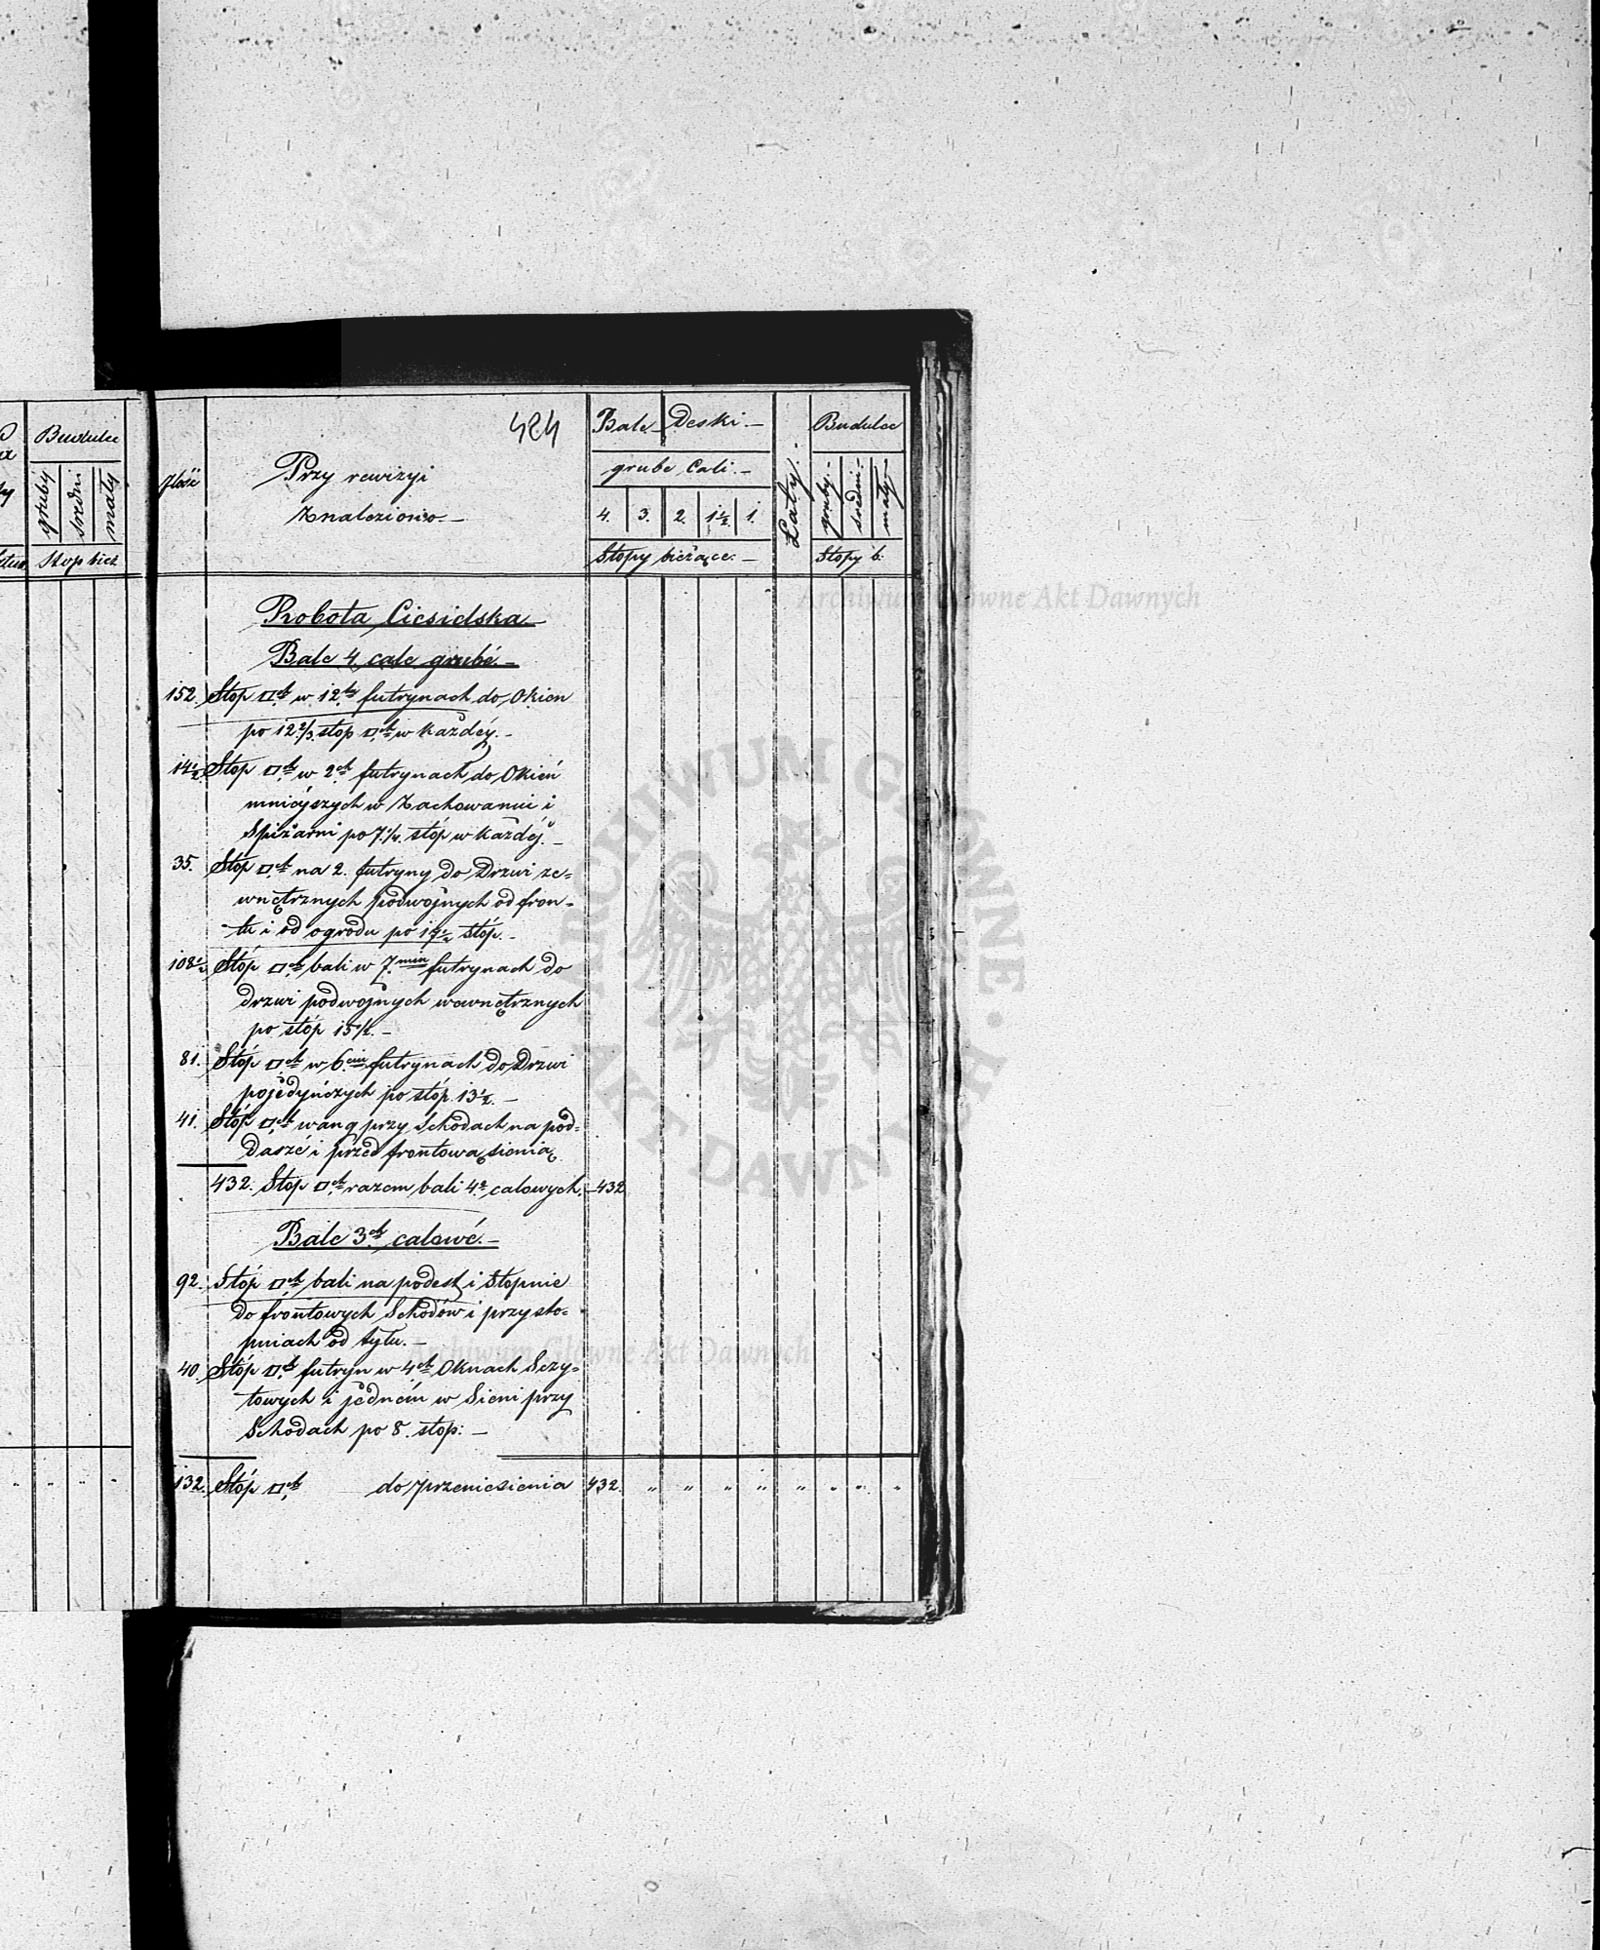 Budulce
gruby
średni
mały
Stop bież
424
Jlość
Przy rewizyi
Znaleziono.—
Bale— Deski.—
grube Cali.—
4. 3. 2. 1½. 1.
Stopy bieżące.—
Łaty.
Budulce
gruby.
średni.
mały.
Stopy b.
Robota Ciesielska—
Bale 4 cale grubé.—
152. Stop □ch w 12tu futrynach do Okien
po 12 2/3 stóp □ch w każdéy.—
14½ Stop □ch w 2ch futrynach do Okień
mniéjszych w Zachowaniu i
Spiżarni po 7¼. stóp w każdéj.—
35. Stop □ch na 2. futryny do Drzwi ze=
wnętrznych podwojnych od fron=
tu i od ogrodu po 17½ stóp.—
108½ Stóp □ch bali w 7miu futrynach do
drzwi podwojnych wewnętrznych
po stóp 15½.—
81. Stóp □ch w 6ciu futrynach do Drzwi
pojedyńczych po stóp 13½.—
41. Stóp □ch wang przy Schodach na pod=
dasze i przed frontową sienią
432. Stop □ch razem bali 4o calowych.— 432
Bale 3ch calowé.—
92. Stóp □ch bali na podest i Stopnie
do frontowych Schodów i przy sto=
pniach od tyłu.—
40. Stóp □ch futryn w 4ch Oknach Sczy=
towych i jedném w Sieni przy
Schodach po 8. stop:—
132. Stóp □ch do przeniesienia 432. " " " " " " " "
ARCHIWUM GŁÓWNE AKT DAWNYCH
Archiwum Główne Akt Dawnych
Archiwum Główne Akt Dawnych